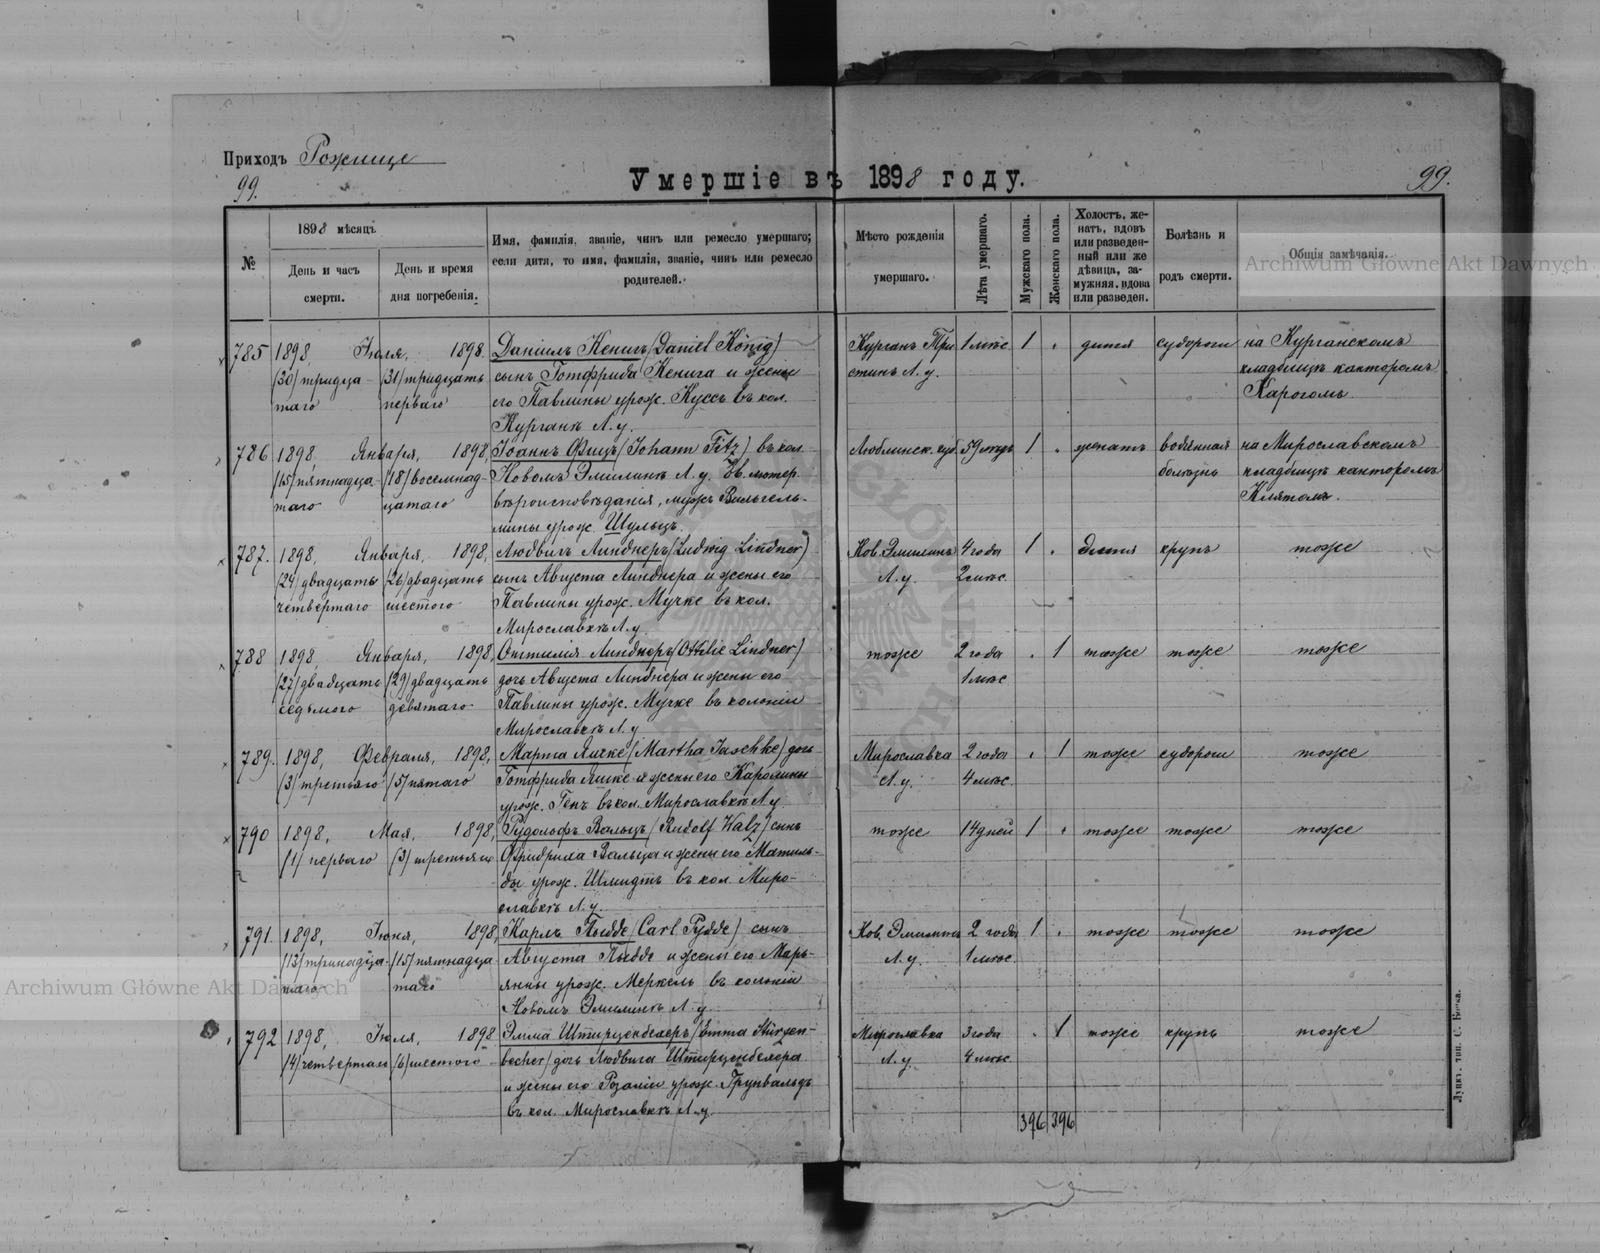 Приходъ Рожище
99.
Умершіе въ 1898 году.
99.
№
1898 мѣсяцъ
День и часъ смерти.
День и время дня погребенія.
Имя, фамилія, званіе, чинъ или ремесло умершаго;
если дитя, то имя, фамилія, званіе, чинъ или ремесло
родителей.
Мѣсто рожденія
умершаго.
Лѣта умершаго.
Мужскаго пола.
Женскаго пола.
Холостъ, же-
натъ, вдовъ
или разведен-
ный или же
дѣвица, за-
мужняя, вдова
или разведен.
Болѣзнь и
родъ смерти.
Общія замѣчанія.
785 1898, Іюля, 1898. Даніилъ Кенигъ (Daniel König) Курганъ Три 1 мѣс 1 . дитя судороги на Курганскомъ
(30) тридца- (31) тридцать сынъ Готфрида Кенига и жены стинъ Л. у. кладбищѣ канторомъ
таго перваго его Павлины урож. Куссъ въ кол. Карогомъ.
Курганѣ Л. у.
786 1898, Января, 1898, Іоаннъ Фицъ (Johann Fitz) въ кол. Люблинск. губ 59 лѣтъ 1 . женатъ водянная на Мирославскомъ
(15) пятнадца- (18) восемнад- Новомъ Эмилинѣ Л. у. Ев. лютер. болѣзнь кладбищѣ канторомъ
таго цатаго вѣроисповѣданія, мужъ Вильгель- Клятомъ.
мины урож. Шульцъ.
787. 1898, Января, 1898, Людвигъ Линднеръ (Ludwig Lindner) Нов. Эмилинъ 4 года 1 . дитя крупъ тоже
(24) двадцать (26) двадцать сынъ Августа Линднера и жены его Л. у. 2 мѣс.
четвертаго шестого Павлины урож. Мучке въ кол.
Мирославкѣ Л. у.
788 1898, Января, 1898, Оттилія Линднеръ (Ottilie Lindner) тоже 2 года . 1 тоже тоже тоже
(27) двадцать (29) двадцать дочь Августа Линднера и жены его 1 мѣс
седьмого девятаго Павлины урож. Мучке въ колоніи
Мирославкѣ Л. у
789. 1898, Февраля, 1898, Марта Яшке (Martha Jaschke) дочь Мирославка 2 года . 1 тоже судороги тоже
(3) третьяго (5) пятаго Готфрида Яшке и жены его Каролины Л. у. 4 мѣс.
урож. Генъ въ кол. Мирославкѣ Л. у
790 1898, Мая, 1898, Рудольфъ Вальцъ (Rudolf Walz) сынъ тоже 14 дней 1 . тоже тоже тоже
(1) перваго (3) третьяго Фридриха Вальца и жены его Матиль-
ды урож. Шмидтъ въ кол. Миро-
славкѣ Л. у.
791. 1898, Іюня, 1898, Карлъ Пыдде (Carl Pydde) сынъ Нов. Эмилинъ 2 года 1 . тоже тоже тоже
(13) тринадца- (15) пятнадца Августа Пыдде и жены его Марь- Л. у. 1 мѣс.
таго таго янны урож. Меркель въ колоніи
Новомъ Эмилинѣ Л. у.
792 1898, Іюля, 1898 Эмма Штирценбехеръ (Emma Stürzen- Мирославка 3 года . 1 тоже крупъ тоже
(4) четвертаго (6) шестого becher) дочь Людвига Штирценбехера Л. у. 4 мѣс.
и жены его Розаліи урож. Грунвальдъ
въ кол. Мирославкѣ Л. у.
396 396
Луцкъ. тип. С. Бока.
Archiwum Główne Akt Dawnych
Archiwum Główne Akt Dawnych